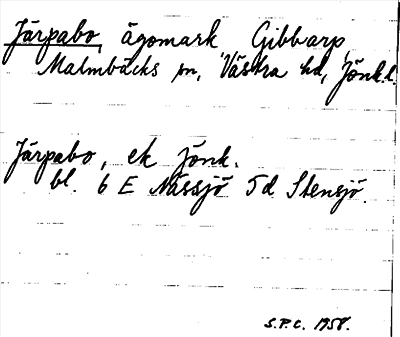 Järpabo, ägomark Gibbarp
Malmbäcks sn, Västra hd, Jönk.l.
Järpabo, ek Jönk.
bl. 6 E Nässjö 5d Stensjö.
S.P.C. 1958.